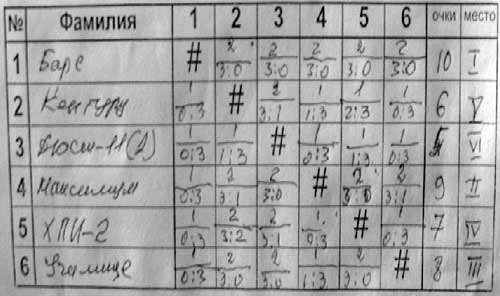 № Фамилия 1 2 3 4 5 6 очки место
1 Барс # 2 3:0 2 3:0 2 3:0 2 3:0 2 3:0 10 I
2 Кенгуру 1 0:3 # 2 3:1 1 1:3 1 2:3 1 0:3 6 V
3 Дюсш-11(2) 1 0:3 1 1:3 # 1 0:3 1 1:3 1 0:3 5 VI
4 Максимум 1 0:3 2 3:1 2 3:0 # 2 3:0 2 3:1 9 II
5 ХПИ-2 1 0:3 2 3:2 2 3:1 1 0:3 # 1 0:3 7 IV
6 Училище 1 0:3 2 3:0 2 3:0 1 1:3 2 3:0 # 8 III